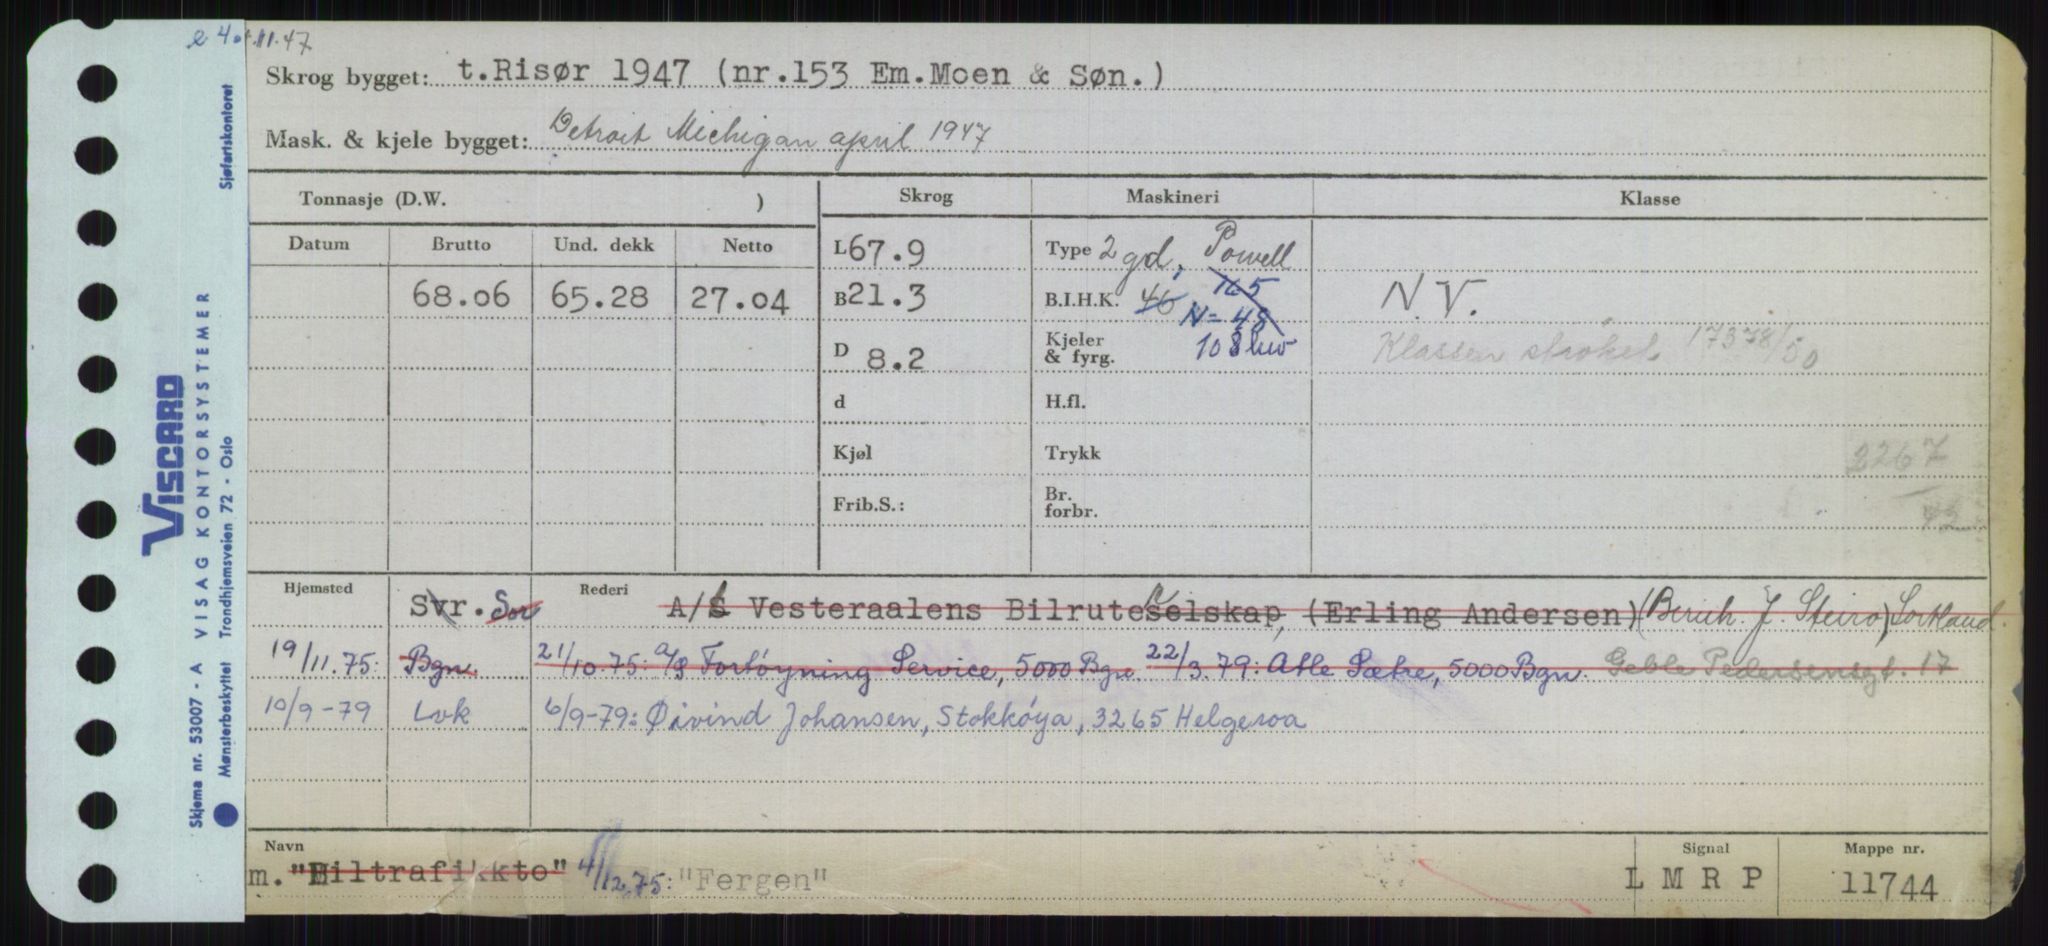 e 4. 11.47
Skrog bygget: t.Risør 1947 (nr.153 Em.Moen & Søn.)
Mask. & kjele bygget: Detroit Michigan april 1947
Tonnasje (D.W. )
Skrog
Maskineri
Klasse
Datum
Brutto
Und. dekk
Netto
68.06
65.28
27.04
L 67.9
B 21.3
D 8.2
d
Kjøl
Frib.S.:
Type 2 gd. Powell
B.I.H.K. 46 165
N=48
Kjeler
& fyrg. 108
H.fl.
Trykk
Br.
forbr.
N.V.
Klassen strøket 17378/50
3267
42
Hjemsted
Rederi
Svr. Sor A/S Vesteraalens Bilruteselskap, (Erling Andersen) (Berich. J. Steiro) Sortland.
19/11.75: Bgn. 21/10.75: A/S Fortøyning Service, 5000 Bgn. 22/3.79: Atle Sætre, 5000 Bgn. Geble Pedersensgt. 17
10/9-79 Lvk 6/9-79: Øivind Johansen, Stokkøya, 3265 Helgeroa
Navn
Signal
Mappe nr.
m. "Biltrafikkto" 4/12.75: "Fergen"
L M R P
11744
VISCARD
Skjema nr. 53007 - A VISAG KONTORSYSTEMER
Mønsterbeskyttet Trondhjemsveien 72 - Oslo Sjøfartskontoret